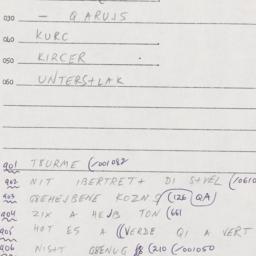 030 — QARUJS
040 KURC
050 KIRCER
060 UNTERS+LAK
901 TSURME (/001092
902 NIT IBERTRET+ DI S+VEL (/0610
903 GEHEJBENE KOZN$ (126 QA)
904 ZIX A HEJB TON (661
905 HOT ES A ((VERDE QI A VERT
906 NISHT GENUG (210 (/001050